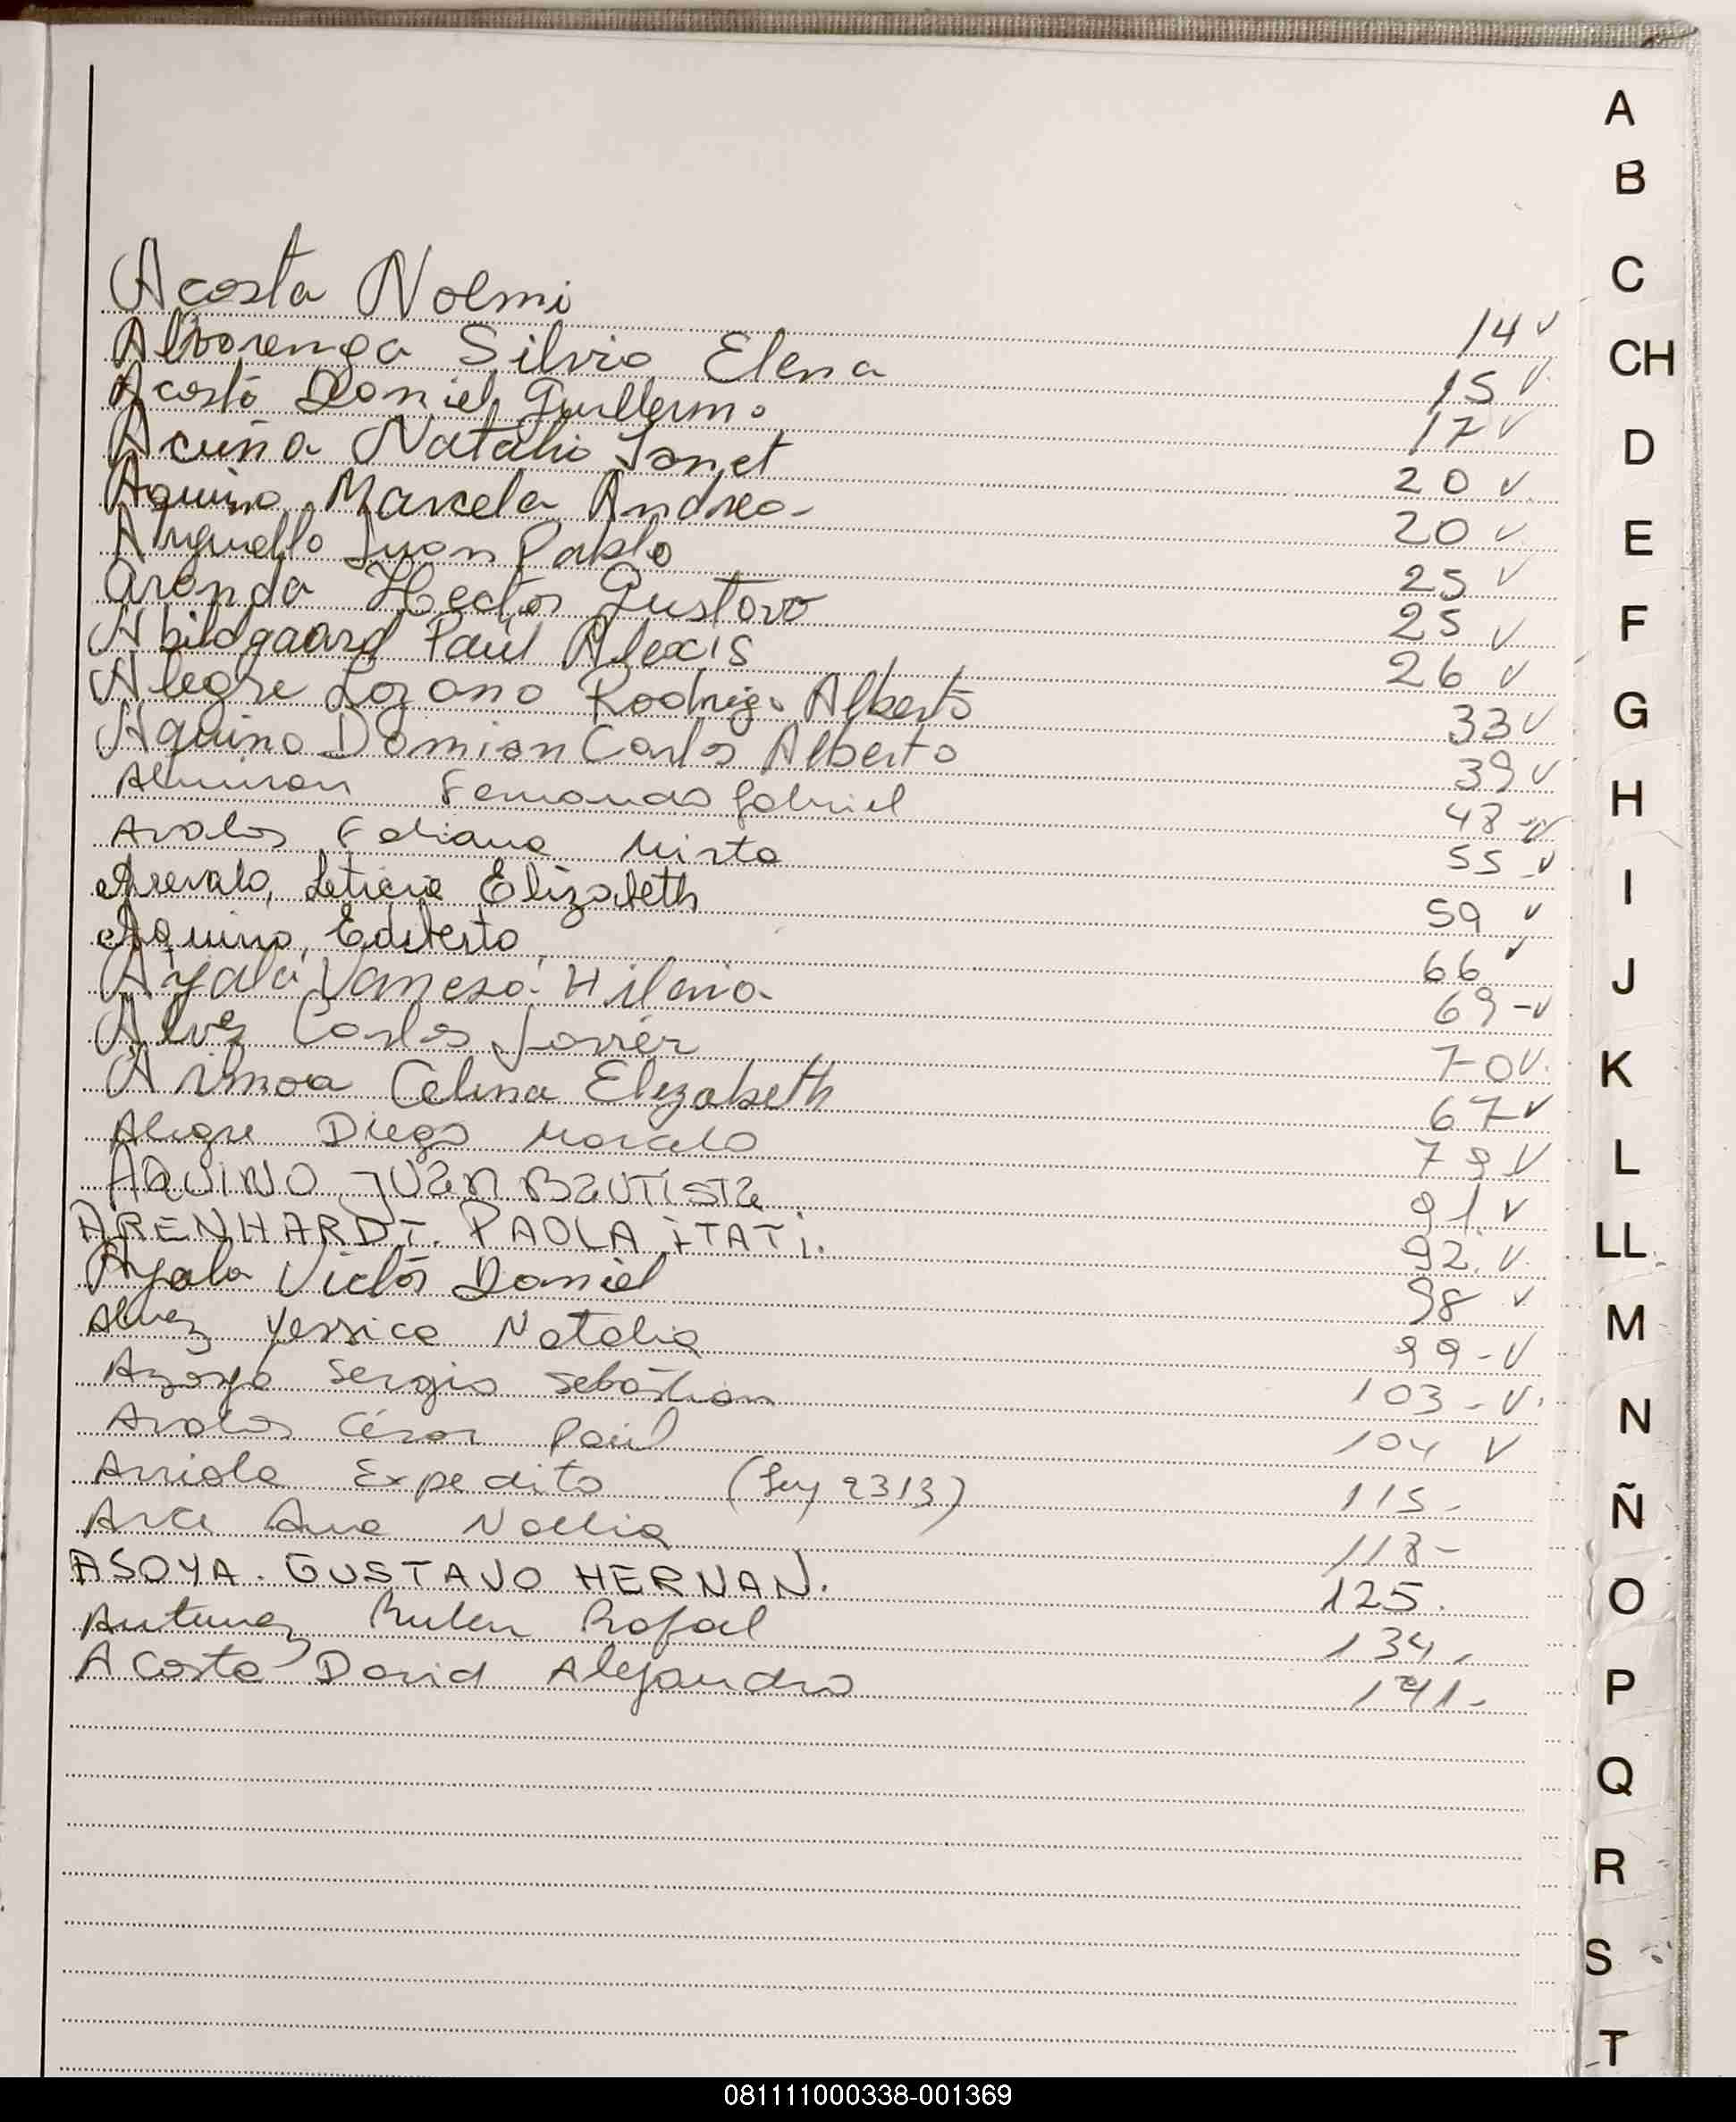 A
B
C
CH
D
E
F
G
H
I
J
K
L
LL
M
N
Ñ
O
P
Q
R
S
T
Acosta Noemi 14 v
Alvarenga Silvia Elena 15 v
Acosta Daniel Guillermo 17 v
Acuña Natalia Janet 20 v
Aquino Marcela Andrea- 20 v
Arguello Juan Pablo 25 v
Aranda Hector Gustavo 25 v
Abildgaard Paúl Alexis 26 v
Alegre Lozano Rodrigo Alberto 33 v
Aquino Damian Carlos Alberto 39 v
Almiron Fernando Gabriel 48 -v
Avalos Fabiana Mirta 55 v
Arevalo, Leticia Elizabeth 59 v
Aquino, Edilberto 66 v
Ayala Vanesa Hilaria- 69 -v
Alvez Carlos Javier 70 v.
Armoa Celina Elizabeth 67 v
Alegre Diego Marcelo 79 v
AQUINO JUAN BAUTISTA 91. v
ARENHARDT. PAOLA ITATI. 92. v.
Ayala Victor Daniel 98 v
Alvez Yessica Natalia 99 - v
Azoya Sergio Sebastian 103 - v.
Avalos César Paúl 104 v
Arriola Expedito (Ley 2313) 115-
Arce Ana Noelia 118-
ASOYA. GUSTAVO HERNAN. 125.
Antunez Ruben Rafael 134.
Acosta David Alejandro 141-
081111000338-001369